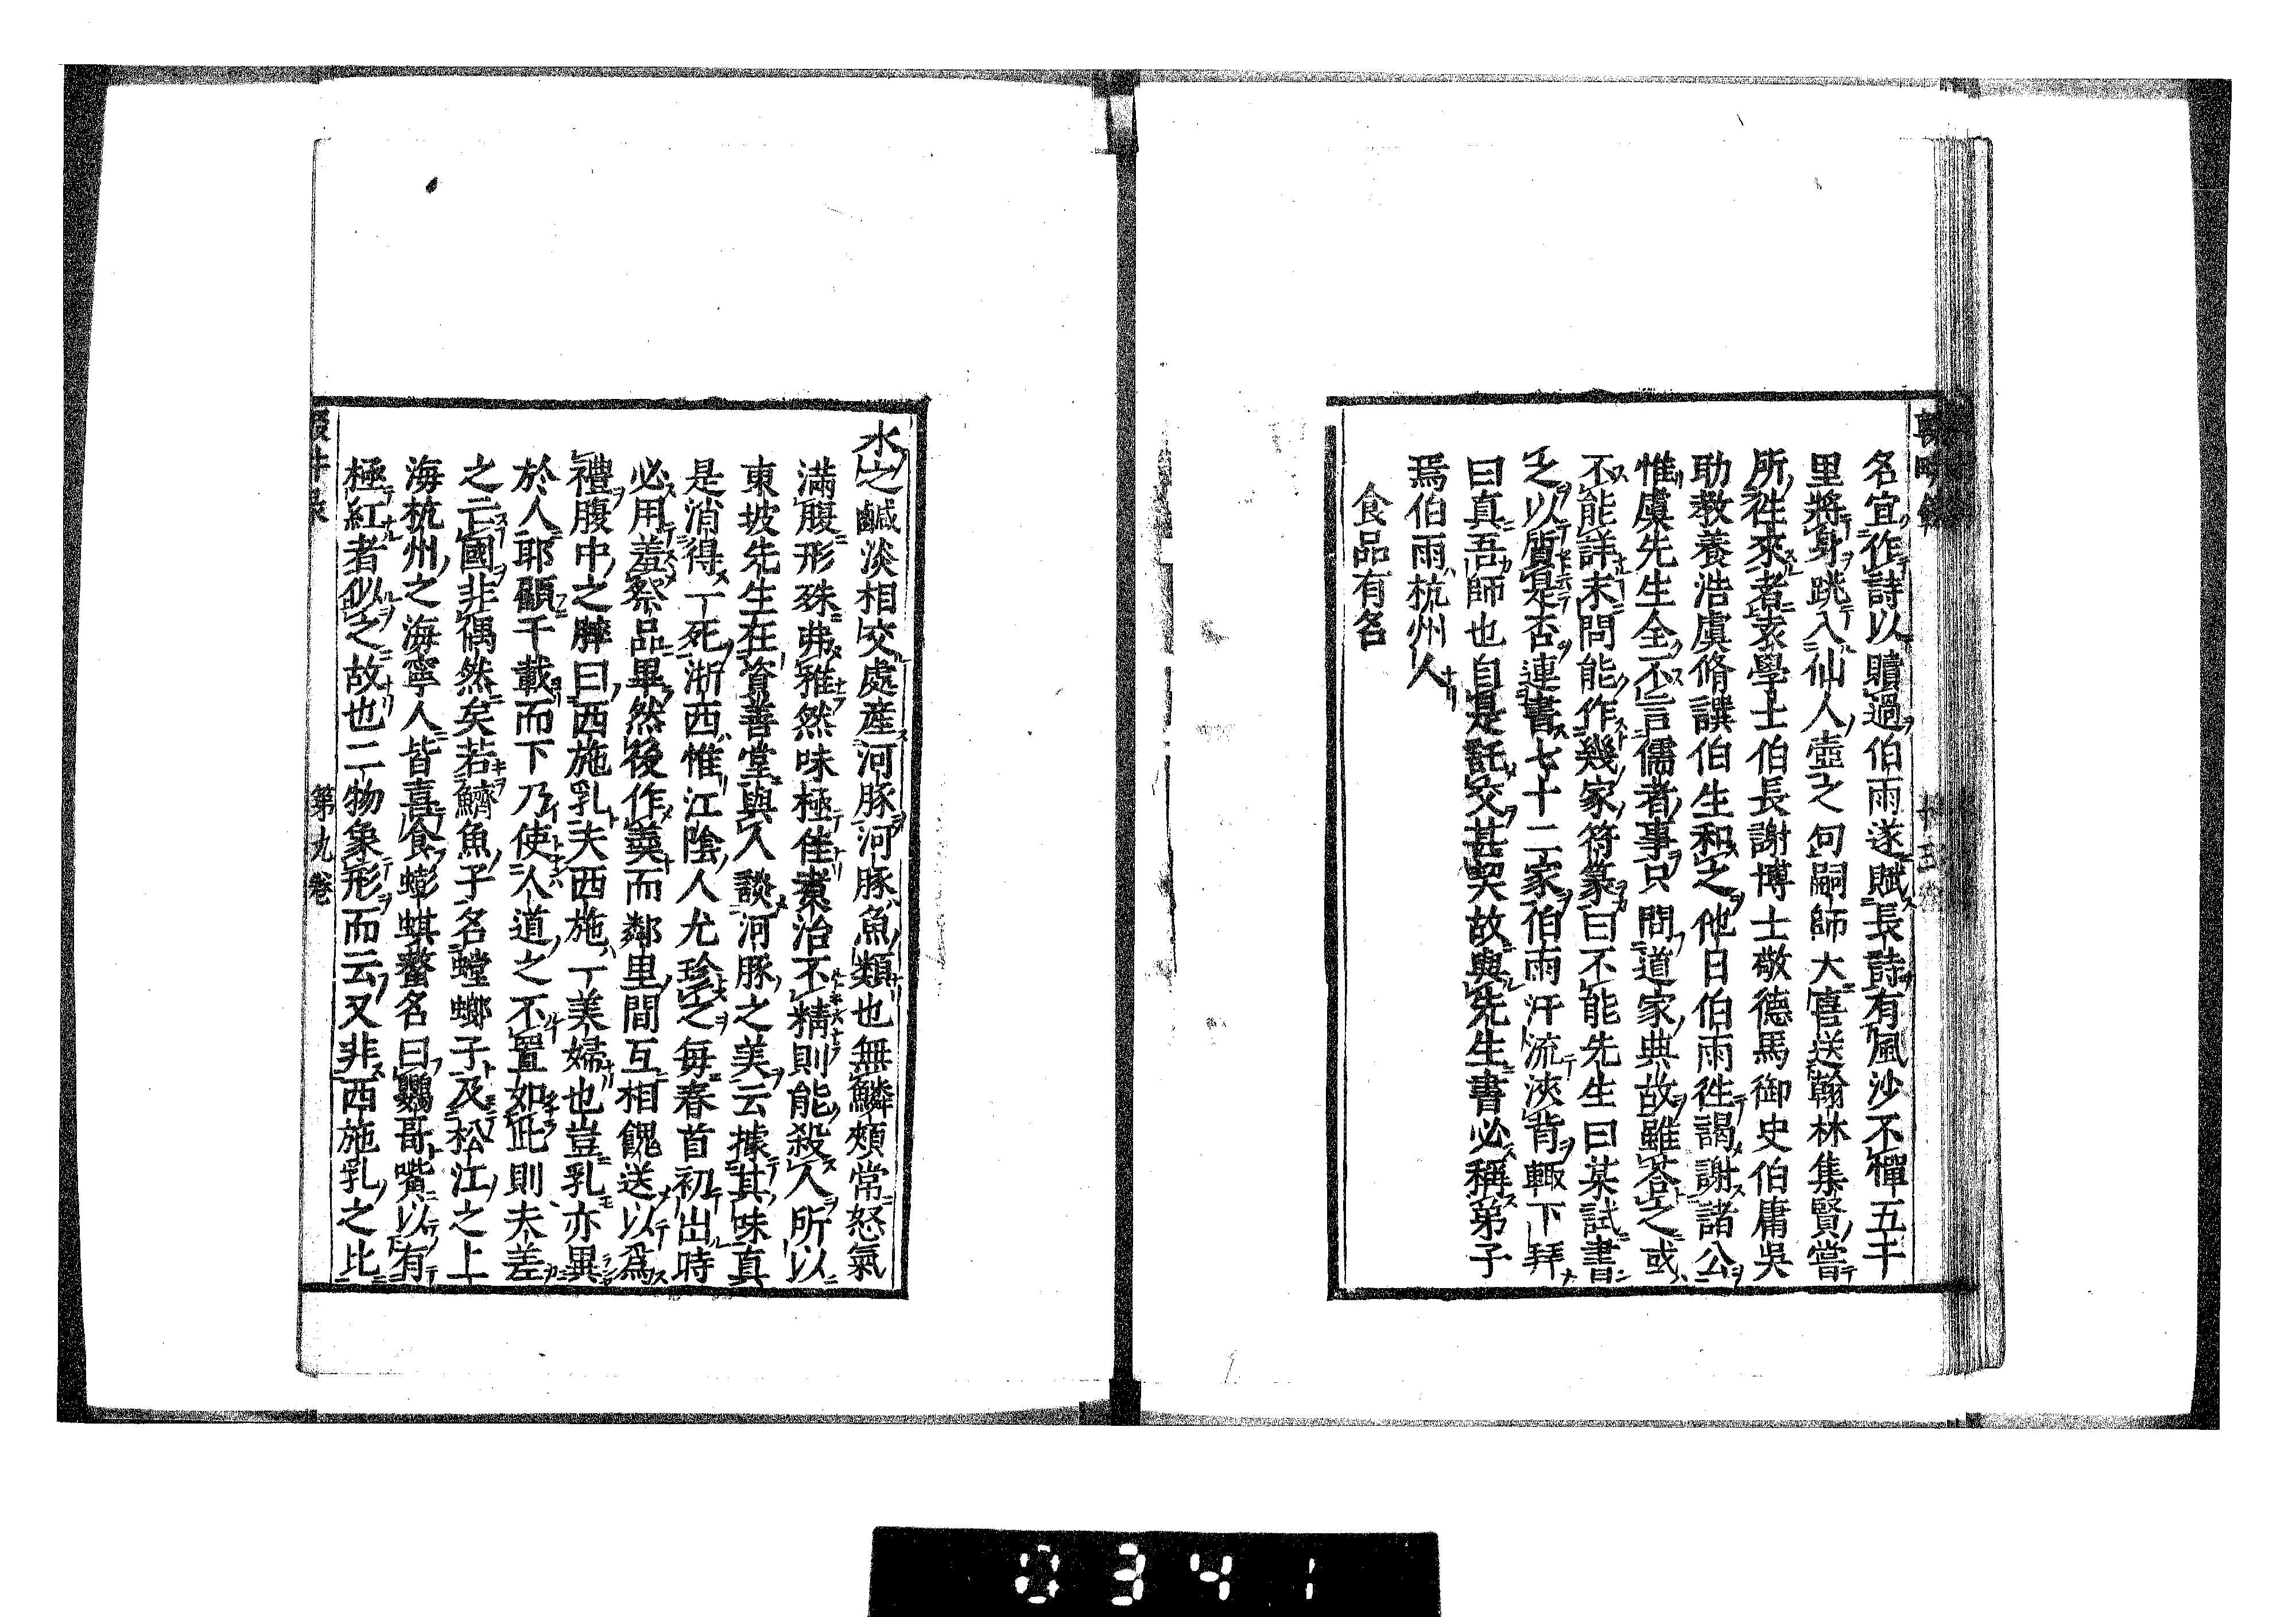 名宜作詩以贖過伯雨遂賦長詩有風沙不憚五千
里將身跳入仙人壺之句嗣師大喜送翰林集賢嘗
所往來者袁學士伯長謝博士敬德馬御史伯庸吳
助教養浩虞脩譔伯生和之他日伯雨往謁謝諸公
惟虞先生全不言儒者事只問道家典故雖荅之或
不能詳末問能作幾家符篆曰不能先生曰某試書
之以質是否連書七十二家伯雨汗流浹背輙下拜
曰真吾師也自是託交甚契故與先生書必稱弟子
焉伯雨杭州人
食品有名
水之鹹淡相交處産河豚河豚魚類也無鱗頰常怒氣
滿腹形殊弗雅然味極佳煑治不精則能殺人所以
東坡先生在資善堂與人談河豚之美云據其味真
是消得一死浙西惟江陰人尤珍之每春首初出時
必用羞祭品畢然後作羹而鄰里間互相餽送以爲
禮腹中之膟曰西施乳夫西施一美婦也豈乳亦異
於人耶顧千載而下乃使人道之不置如此則夫差
之亡國非偶然矣若鱭魚子名螳螂子及松江之上
海杭州之海寧人皆喜食蟛蜞螯名曰鸚哥嘴以有
極紅者似之故也二物象形而云又非西施乳之比
第九卷